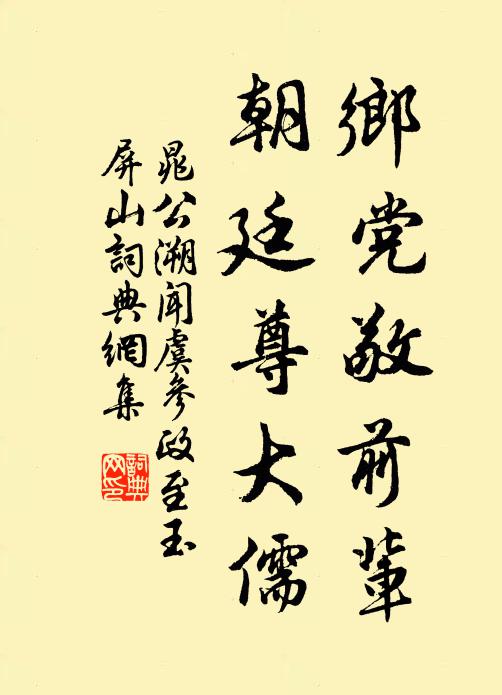 鄉党敬前輩
朝廷尊大儒
晁公溯聞虞參政至玉
屏山詞典網集
詞典
网印